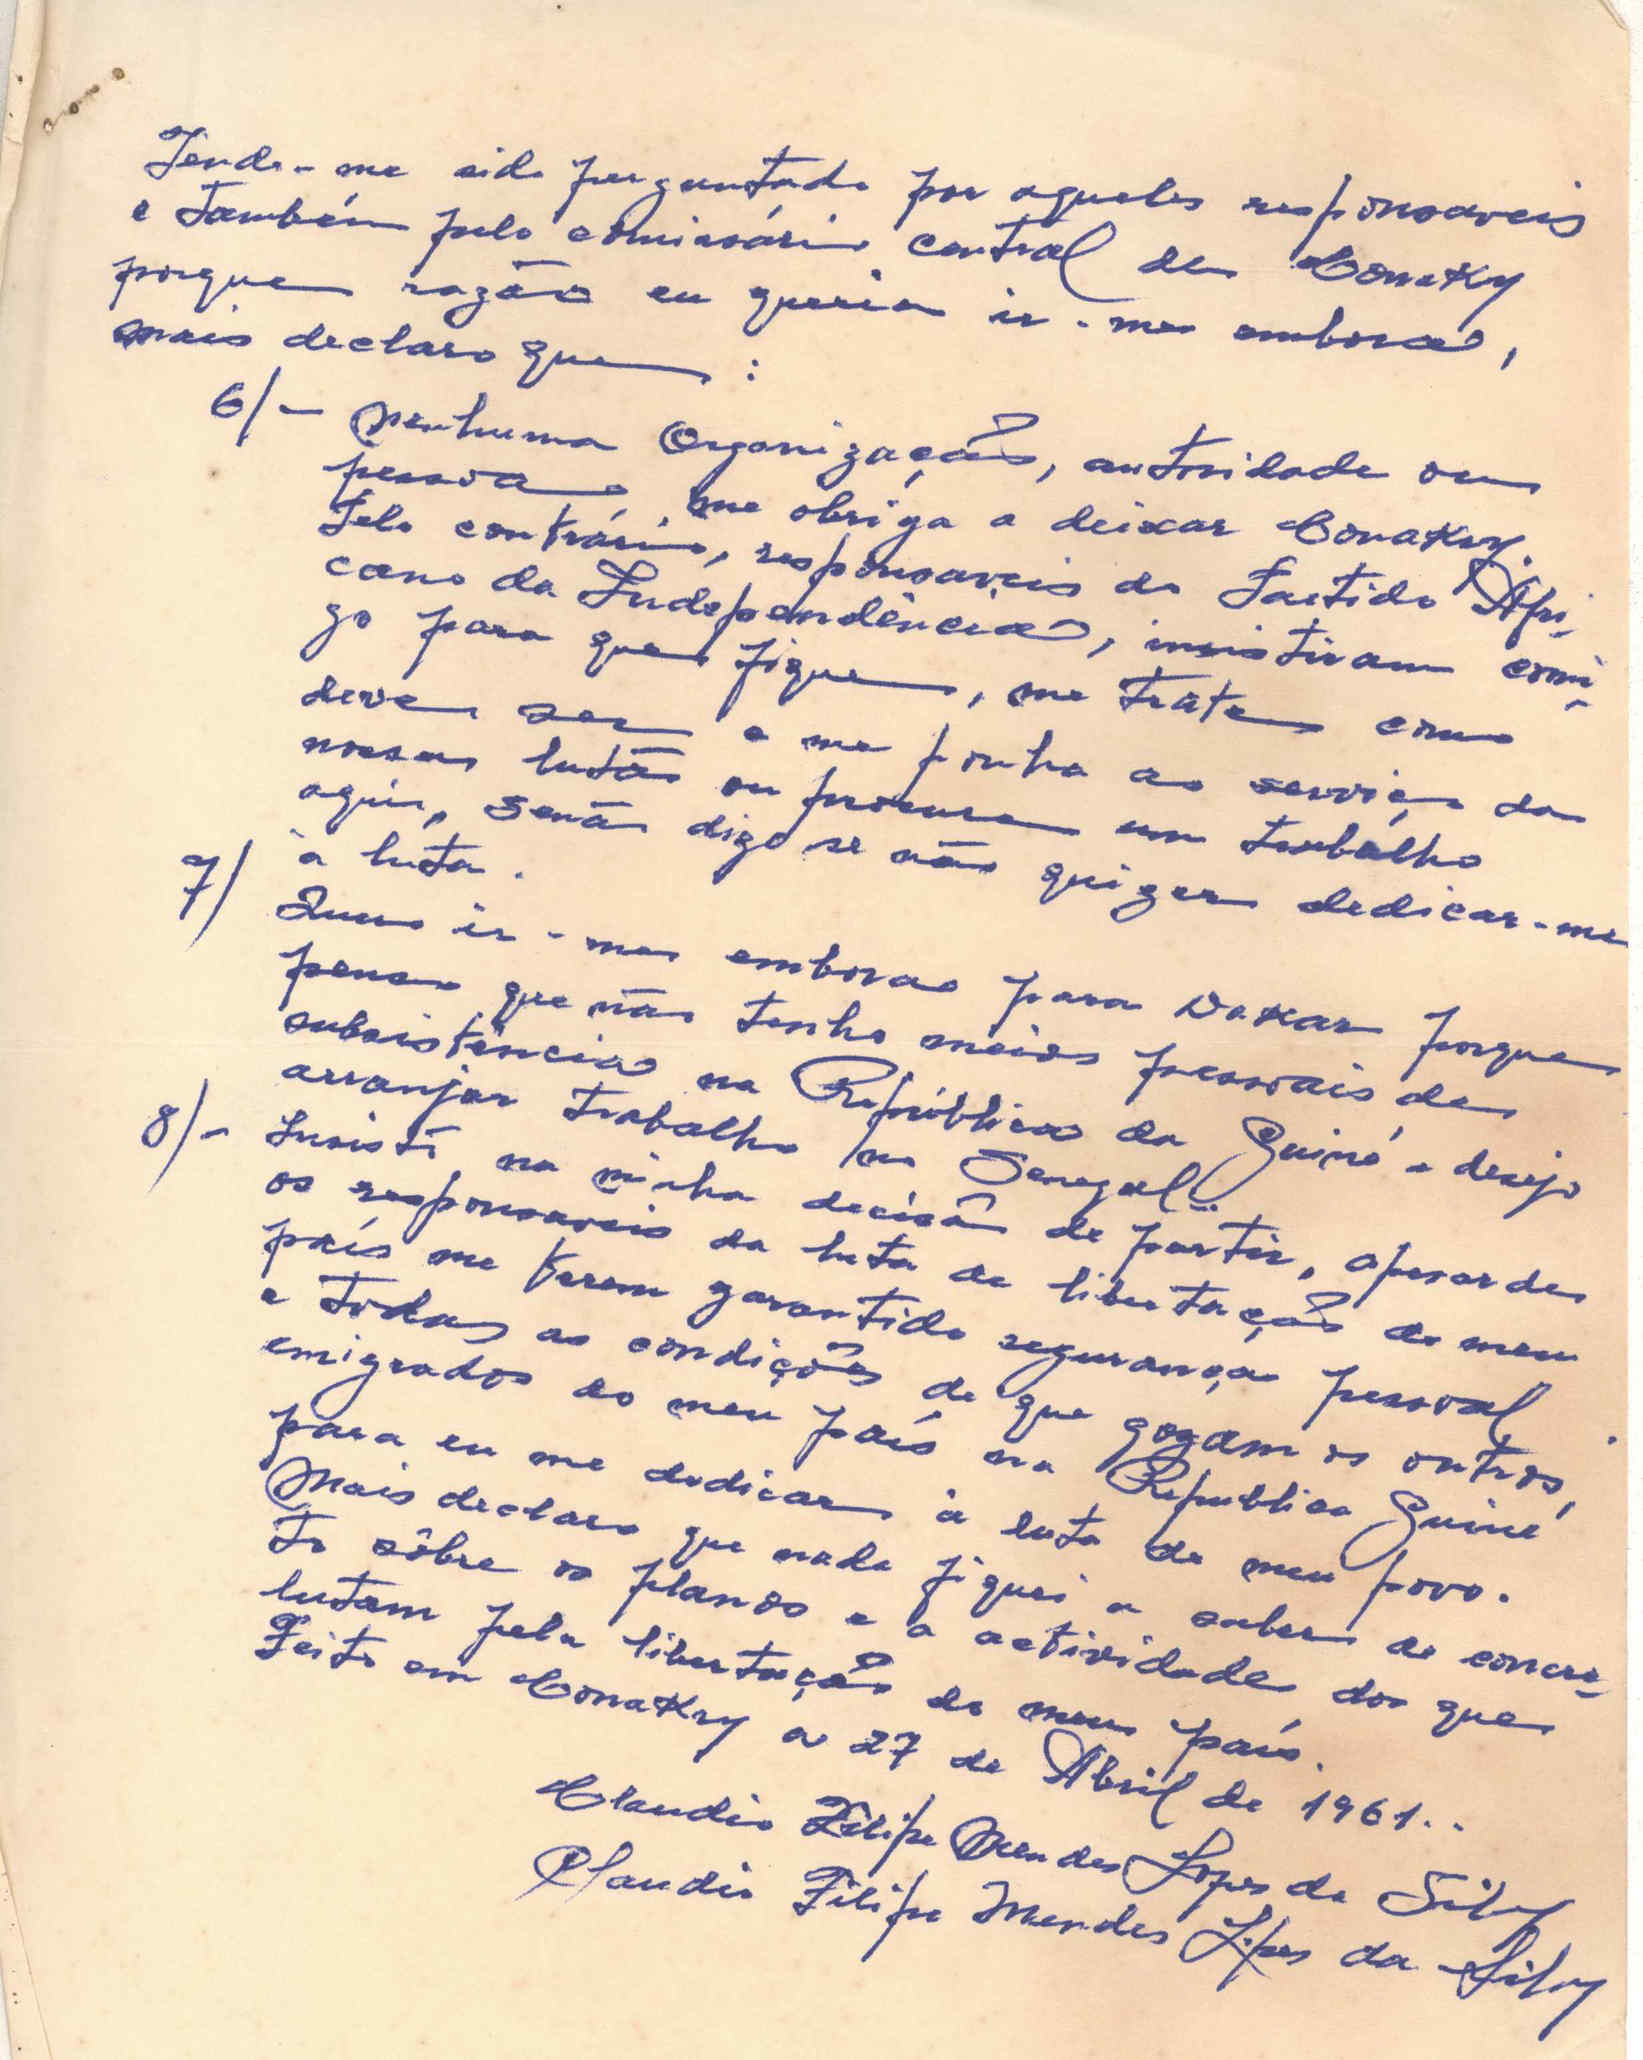 Tendo-me sido perguntado por aqueles responsaveis
e também pelo comissário central de Conakry
porque razão eu queria ir-me embora,
mais declaro que:
6/- Nenhuma Organização, autoridade ou
pessoa, me obriga a deixar Conakry.
Pelo contrário, responsaveis do Partido Afri-
cano da Independência, insistiram comi-
go para que fique, me trate como
deve ser e me ponha ao serviço da
nossa luta ou procure um trabalho
aqui, senão digo se não quizer dedicar-me
à luta.
7/ Quero ir-me embora para Dakar porque
penso que não tenho meios pessoais de
subsistência na República da Guiné e desejo
arranjar trabalho no Senegal..
8/- Insisti na minha decisão de partir, apesar de
os responsaveis da luta de libertação do meu
país me terem garantido segurança pessoal
e todas as condições de que gozam os outros,
emigrados do meu país na Republica Guiné
para eu me dedicar à luta do meu povo.
Mais declaro que nada fiquei a saber de concre-
to sôbre os planos e a actividade dos que
lutam pela libertação do meu país.
Feito em Conakry a 27 de Abril de 1961..
Claudio Filipe Mendes Lopes da Silva
Claudio Filipe Mendes Lopes da Silva